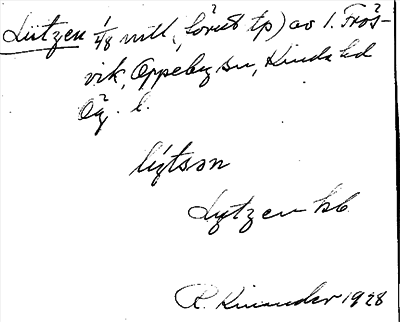 Lützen 1/8 mtl, (förut tp) av 1. Frös-
vik, Oppeby sn, Kinda hd
Ög. l.
lýtsən
Lytzen kb.
R. Kinander 1928